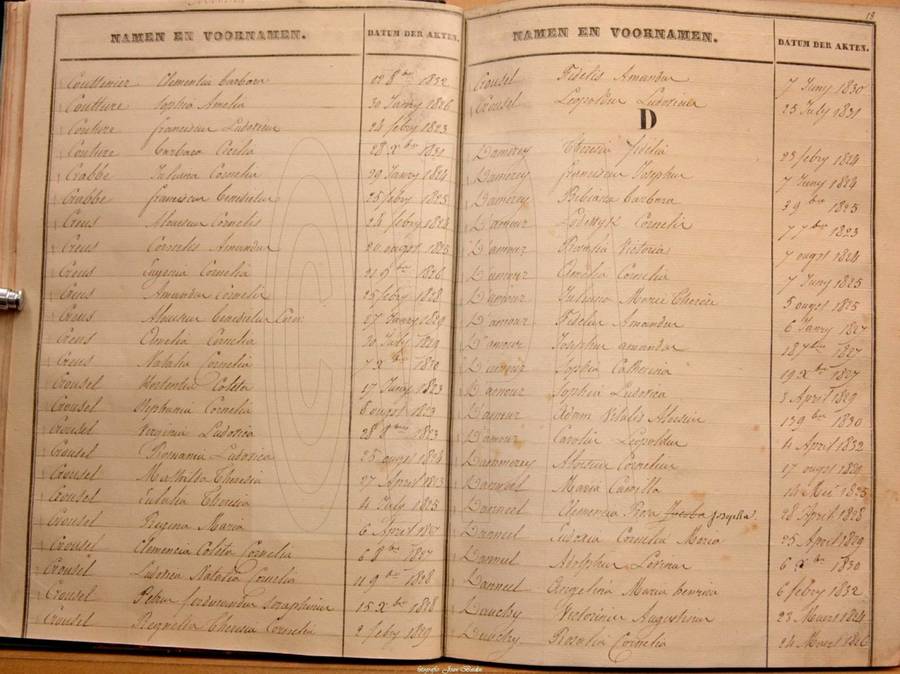 NAMEN EN VOORNAMEN. DATUM DER AKTEN.
Couttenier Clementia Barbara 12 8bre 1832
Coutture Sophia Amelia 30 Janry 1826
Couture franciscus Ludovicus 24 febry 1823
Couture Barbara Cecilia 28 Xbre 1831
Crabbe Juliana Cornelia 29 Janry 1825
Crabbe franciscus Benedictus 25 feby 1825
Creus Aloysius Cornelis febry
Creus Cornelis Amandus 20 august 1825
Creus Eugenia Cornelia 9bre 1826
Creus Amandus Cornelis 25 febry 1828
Creus Benedictus 17 Janry 1829
Creus Amelia Cornelia July 1829
Creus Natalia Cornelia 7 Xbre 1830
Crousel Hortentia Coleta 17 Juny 1823
Crousel Stephania Cornelia 8 augst 1823
Crousel Virginia Ludovica 28 8bre 1823
Crousel Romania Ludovica 25 augst 1824
Crousel Mathilta Theresia 27 April
Crousel Eulalia Theresia 4 July 1825
Crousel Regina Maria 6 April 1827
Crousel Clemencia Coleta Cornelia 6 8bre 1827
Crousel Ludovica Natalia Cornelia 11 9bre 1828
Crousel Petrus ferdinandus Seraphinus 15 Xbre 1828
Crousel Theresia Cornelia 2 feby 1829
18
NAMEN EN VOORNAMEN. DATUM DER AKTEN.
Crousel Fidelis Amandus 7 Juny 1830
Crousel Leopoldus Ludovicus 25 July 1831
D
Damerey Theresia fidelia 23 febry 1824
Damerey franciscus Josephus 7 Juny 1824
Damerey Bibiana Barbara 29 bre 1825
D'amour Lodewyk Cornelis 7 7bre 1823
D'amour Rosalia Victoria 7 augst 1824
D'amour Amelia Cornelia 7 Juny 1825
D'amour Juliana Marie Therese 5 augst 1825
D'amour Fidelis Amandus 6 Janry 1827
D'amour Josephus amandus 18 7bre 1827
D'amour Sophia Catherina 19 Xbre 1827
D'amour Sophia Ludovica 3 April 1829
D'amour Adam Vitalis Aloisius 13 9bre 1830
D'amour Carolus Leopoldus 4 April 1832
Dammerey Aloisius Cornelius 17 augst
Danneel Maria Camilla 14 Mei 1825
Danneel Clemencia Rosa Josepha 28 April 1828
Danneel Ludovica Cornelia Maria 25 April 1829
Danneel Adolphus Livinus 6 Xbre 1830
Danneel Angelina Maria henrica 6 febry 1832
Dauchy Victorina Augustina 23 Maart 1824
Dauchy Rosalia Cornelia 24 Maart 1826